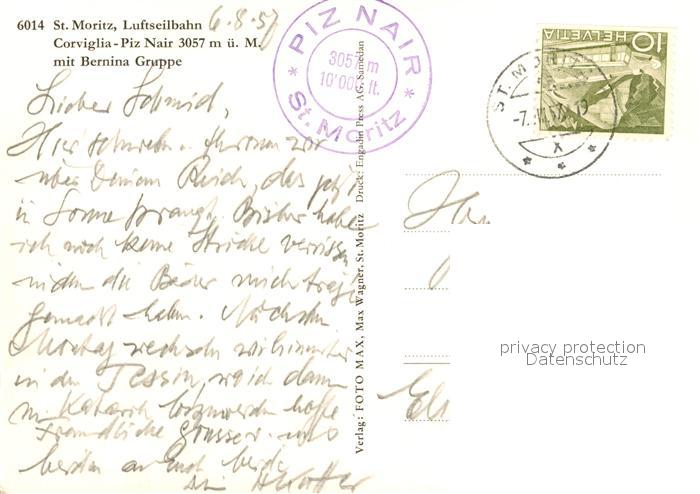 6014 St. Moritz, Luftseilbahn
Corviglia-Piz Nair 3057 m ü. M.
mit Bernina Gruppe
6.8.57
PIZ NAIR
3057 m
10'000 ft.
St. Moritz
HELVETIA
10
ST. MORITZ
X
Lieber Schmid,
Hier schweben
über Deinem Reich, das jetzt
in Sonne prangt. Bisher habe
ich noch keine Stricke verrissen
indem die Bäder mich träge
gemacht haben. Nächsten
Montag wechseln wir hinunter
in den Tessin, wo ich dann
m. Katarrh loszuwerden hoffe
Freundliche Grüsse
an Euch beide
Verlag: FOTO MAX, Max Wagner, St. Moritz Druck: Engadin Press AG, Samedan
privacy protection
Datenschutz